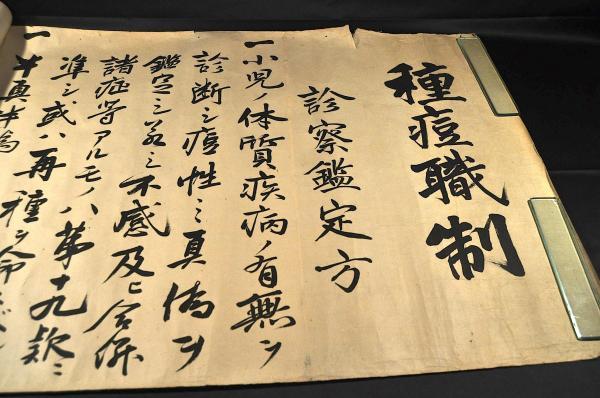 種痘職制
診察鑑定方
一小児ノ体質疾病ノ有無ヲ
診断シ痘性ミ真偽ヲ
鑑定シ若シ不感及ヒ合併
諸症等アルモノハ第十九款ニ
準シ或ハ再種ヲ命
一